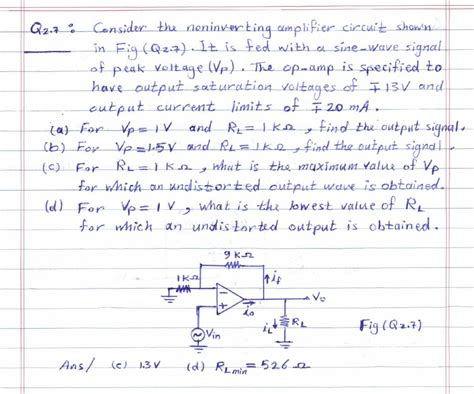 Q2.7 : Consider the noninverting amplifier circuit shown
in Fig (Q2.7). It is fed with a sine-wave signal
of peak voltage (Vp). The op-amp is specified to
have output saturation voltages of ∓13V and
output current limits of ∓20 mA.
(a) For Vp = 1V and RL = 1KΩ, find the output signal.
(b) For Vp = 1.5V and RL = 1KΩ, find the output signal.
(c) For RL = 1KΩ, what is the maximum value of Vp
for which an undistorted output wave is obtained.
(d) For Vp = 1V, what is the lowest value of RL
for which an undistorted output is obtained.
9KΩ
1KΩ
if
-
+
io
Vo
iL
RL
Vin
Fig (Q2.7)
Ans/ (c) 1.3V (d) RLmin = 526 Ω